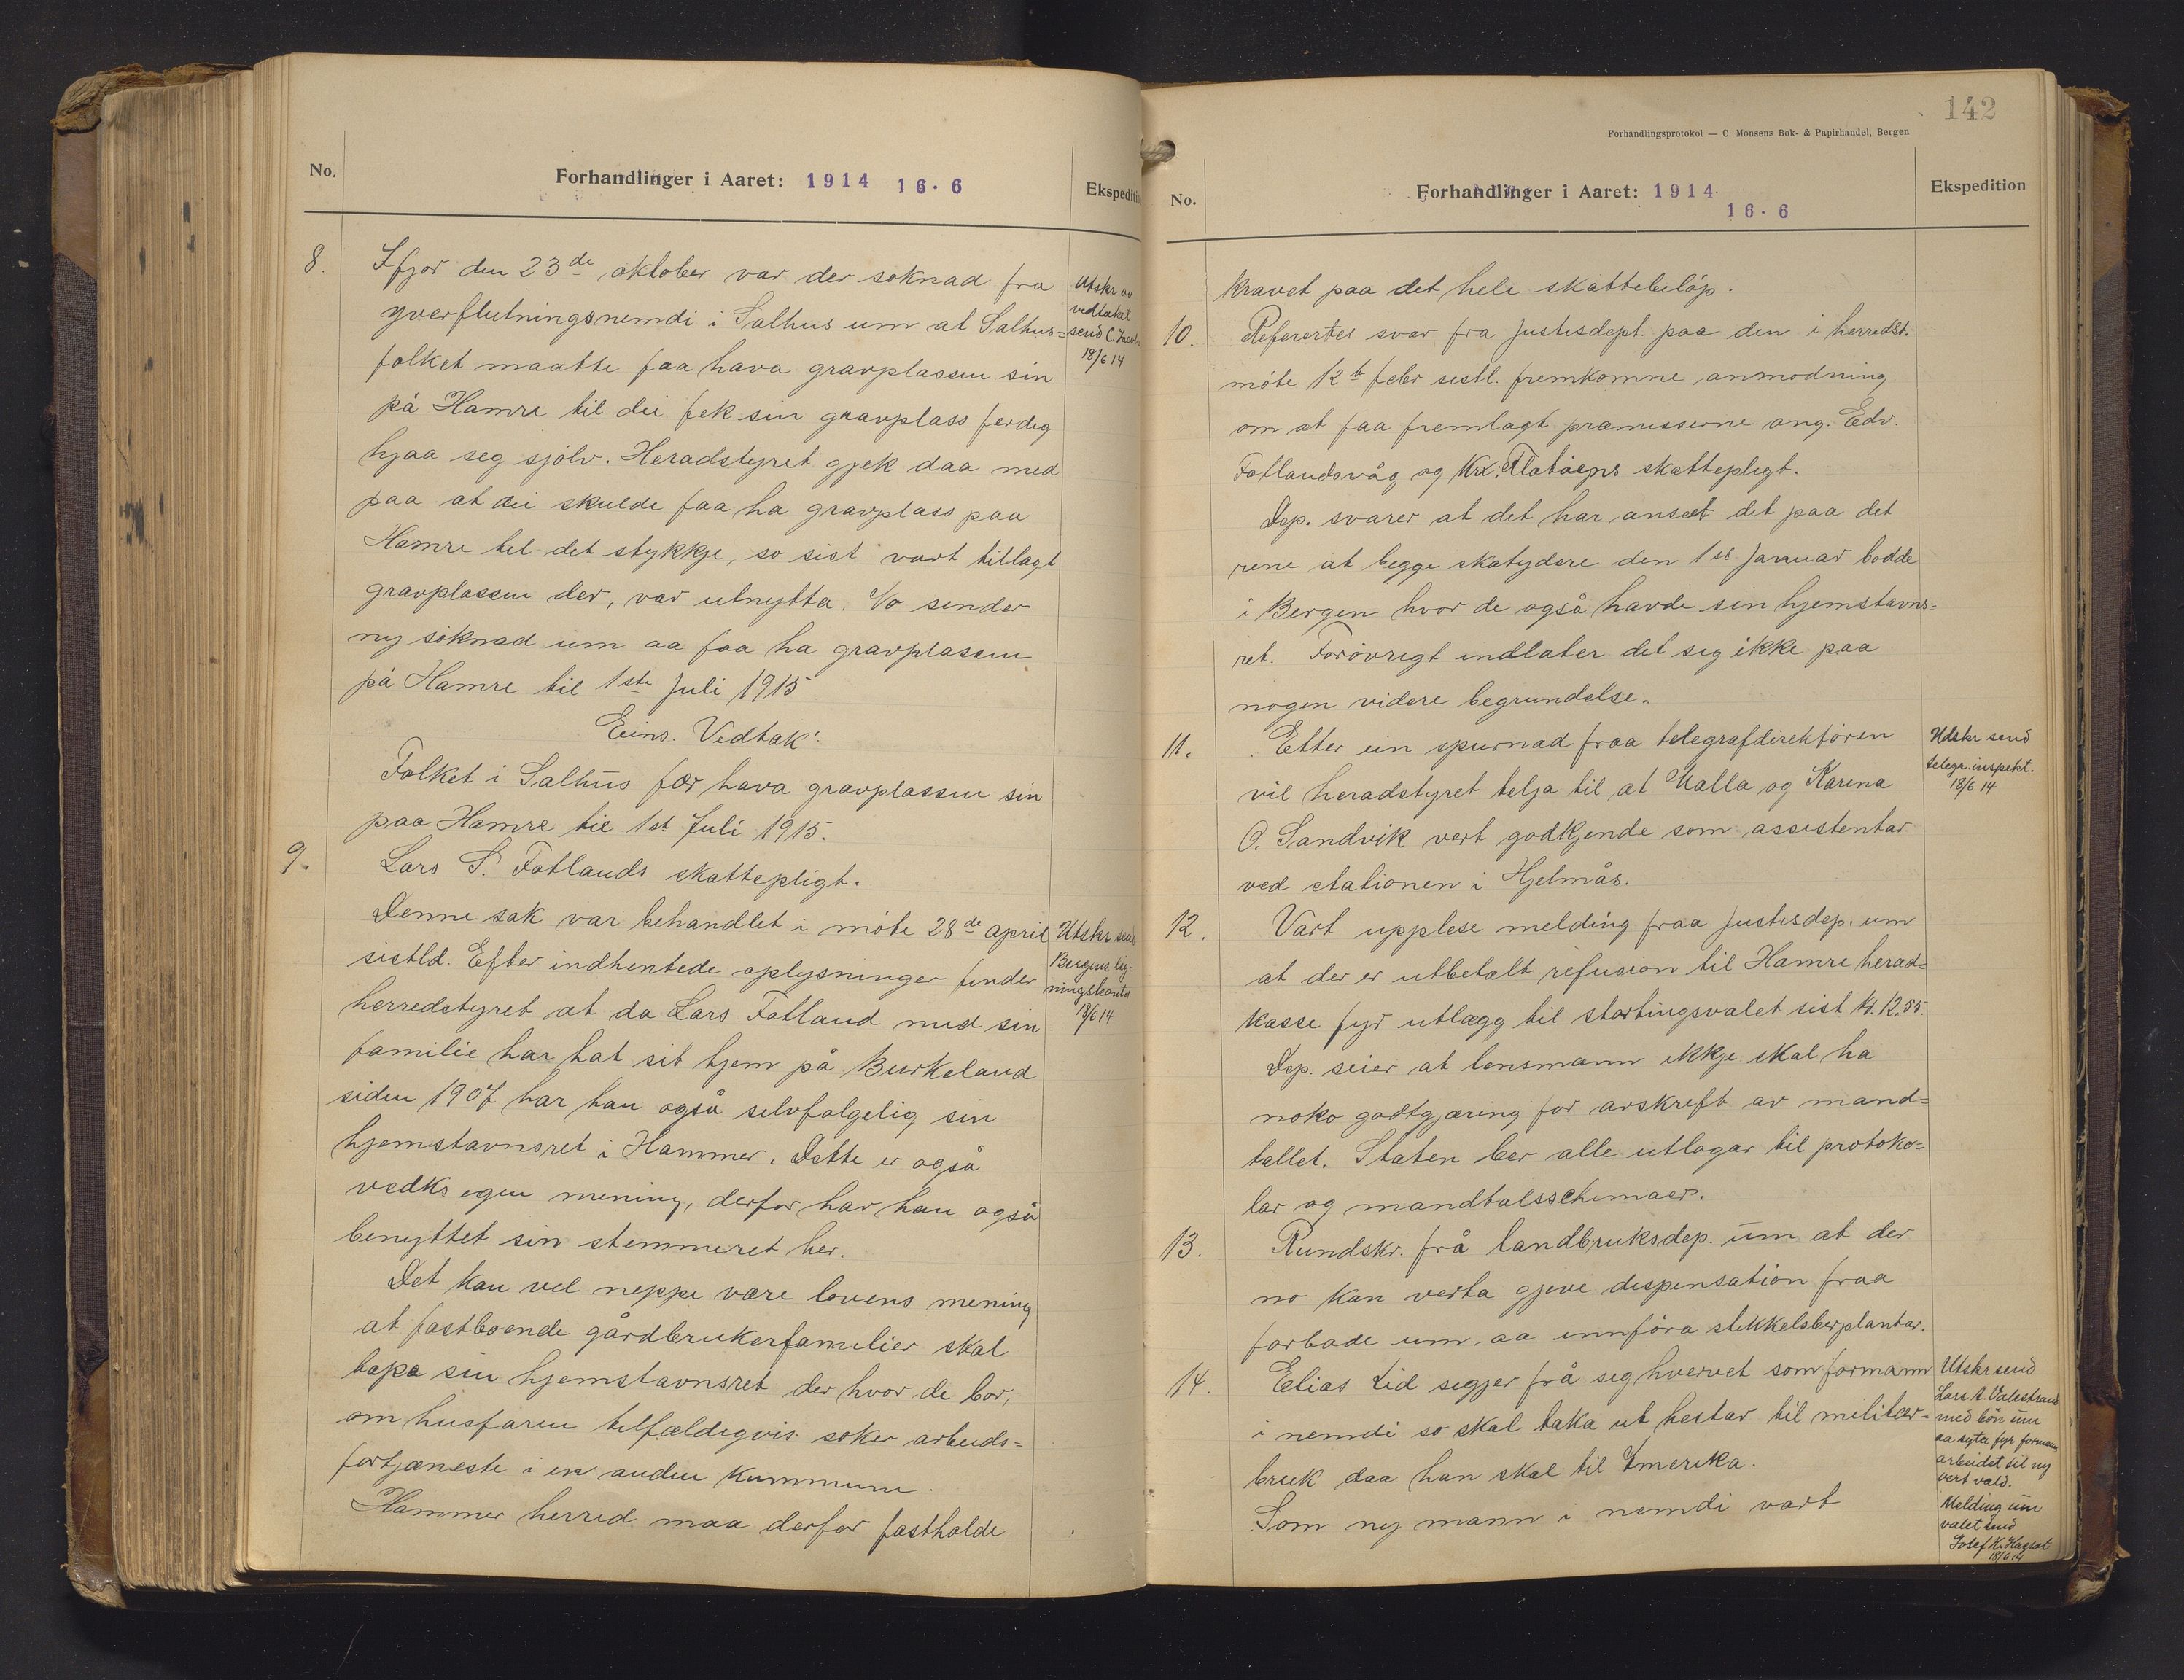 No.
Forhandlinger i Aaret: 1914 16.6
Ekspedition
8.
Ifjor den 23de oktober var der søknad fra
yverflutningsnemdi i Salhus um at Salhus=
folket maatte faa hava gravplassen sin
på Hamre til dei fek sin gravplass ferdig
hjaa seg sjølv. Heradstyret gjek daa med
paa at dei skulde faa ha gravplass paa
Hamre til det stykkje, so sist vart tillagt
gravplassen der, var utnytta. No sender
ny søknad um aa faa ha gravplassen
på Hamre til 1ste Juli 1915
Eins. Vedtak:
Folket i Salhus fær hava gravplassen sin
paa Hamre til 1st Juli 1915.
Utskr av
vedtaket
send C.
18/6 14
9.
Lars S. Fotlands skattepligt.
Denne sak var behandlet i møte 28de april
sistld. Efter indhentede oplysninger finder
herredstyret at da Lars Fotland med sin
familie har hat sit hjem på Burkeland
siden 1907 har han også selvfølgelig sin
hjemstavnsret i Hammer. Dette er også
vedks egen mening, derfor har han også
benyttet sin stemmeret her.
Det kan vel neppe være lovens mening
at fastboende gårdbrukerfamilier skal
tape sin hjemstavnsret der hvor de bor,
om husfaren tilfældigvis søker arbeids=
fortjæneste i en anden kummune.
Hammer herred maa derfor fastholde
Utskr send
Bergens lig=
ningskontor
18/6 14
142
Forhandlingsprotokol — C. Monsens Bok- & Papirhandel, Bergen
No.
Forhandlinger i Aaret: 1914
16.6
Ekspedition
kravet paa det hele skattebeløp.
10.
Referertes svar fra Justisdept. paa den i herredst.
møte 12te febr sistl. fremkomne anmodning
om at faa fremlagt præmisserne ang. Edv.
Fotlandsvåg og Kr. Flatøens skattepligt.
Dep. svarer at det har anseet det paa det
rene at begge skatydere den 1st Januar bodde
i Bergen hvor de også havde sin hjemstavns=
ret. Forøvrigt indlater det sig ikke paa
nogen videre begrundelse.
11.
Etter ein spurnad fraa telegrafdirektøren
vil heradstyret telja til at Nalla og Karina
O. Sandvik vert godkjende som assistentar
ved stationen i Hjelmås.
Utskr send
telegr. inspekt.
18/6 14
12.
Vart upplese melding fraa Justisdep. um
at der er utbetalt refusion til Hamre herad=
kasse fyr utlægg til stortingsvalet sist kr. 12,55.
Dep. seier at lensmann ikkje skal ha
noko godtgjæring for avskrift av mand=
tallet. Staten ber alle utlogar til protoko=
lar og mandtalsschemaer.
13.
Rundskr. frå landbruksdep. um at der
no kan verta gjeve dispensation fraa
forbode um aa innføra stikkelsberplantar.
14.
Elias Lid segjer frå seg hvervet som formann
i nemdi so skal taka ut hestar til militær-
bruk daa han skal til Amerika.
Som ny mann i nemdi vart
Utskr send
Lars A. Valestrand
med bøn um
aa syta fyr formans
arbeidet til ny
vert vald.
Melding um
valet send
Josef K.
18/6 14